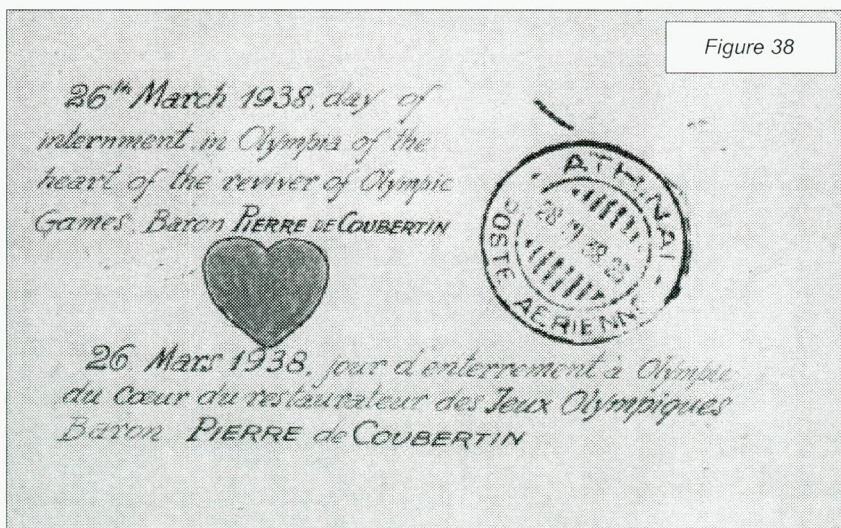 Figure 38
26th March 1938, day of
internment in Olympia of the
heart of the reviver of Olympic
Games, Baron PIERRE DE COUBERTIN
ATHINAI
POSTE AERIENNE
26 Mars 1938, jour d'enterrement à Olympie
du Cœur du restaurateur des Jeux Olympiques
Baron PIERRE de COUBERTIN